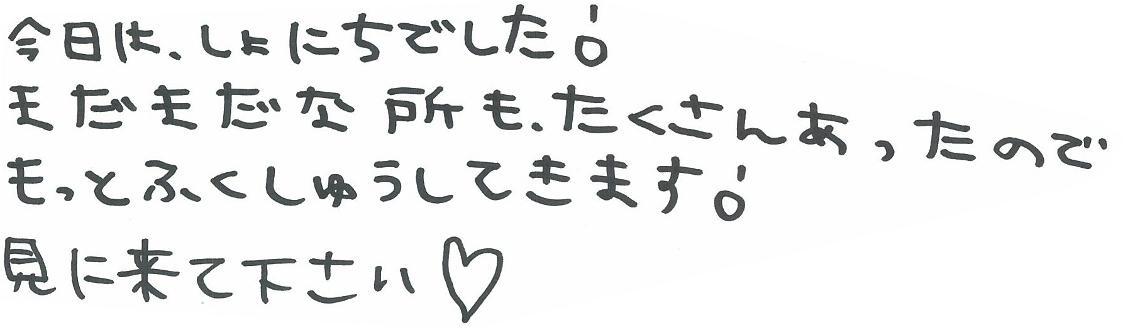 今日は、しょにちでした!
まだまだな所も、たくさんあったので
もっとふくしゅうしてきます!
見に来て下さい♡